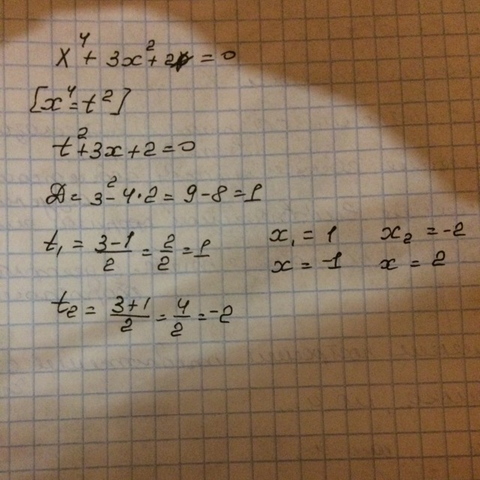 x⁴ + 3x² + 2 = 0
[x⁴ = t²]
t² + 3x + 2 = 0
D = 3² - 4·2 = 9 - 8 = 1
t₁ = (3-1)/2 = 2/2 = 1 x₁ = 1 x₂ = -2
x = -1 x = 2
t₂ = (3+1)/2 = 4/2 = -2